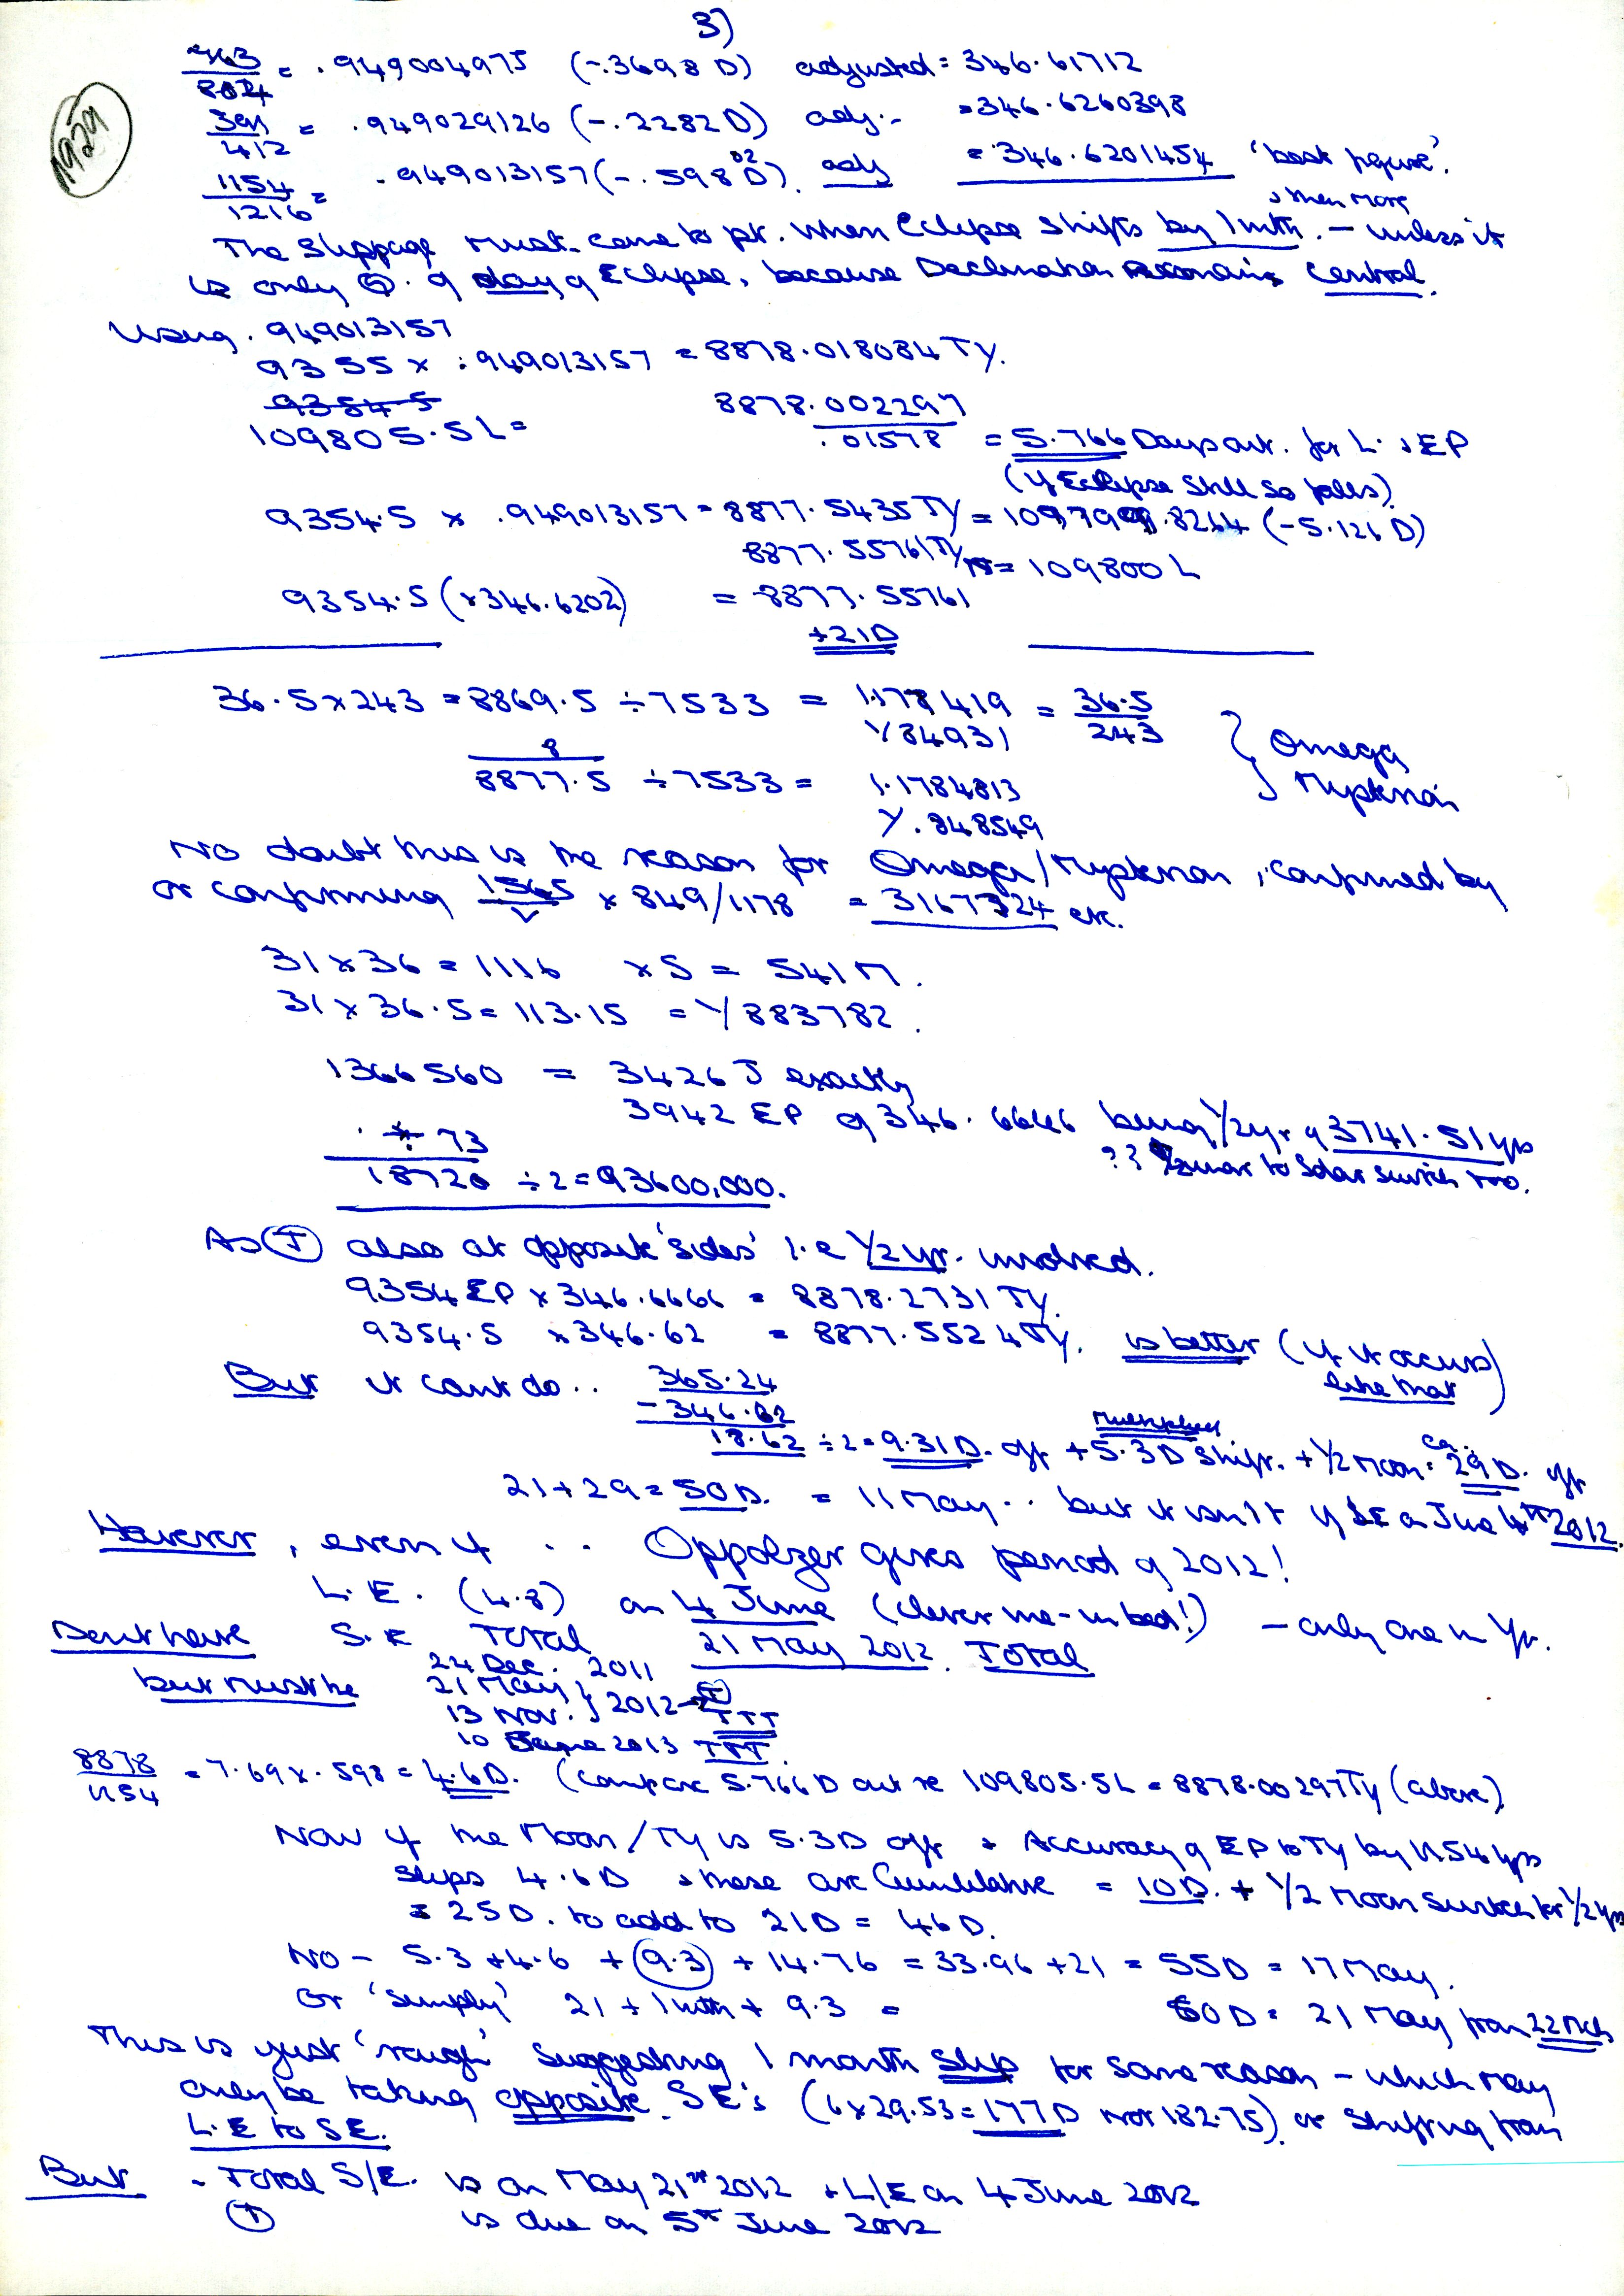 3)
1929
763/804 = .949004975 (-.3698 D) adjusted = 346.61712
391/412 = .949029126 (-.2282 D) adj.- = 346.6260398
1154/1216 = .949013157 (-.598 D). adj = 346.6201454 'best figure'.
The slippage must come to pt. when Eclipse shifts by 1 mth. - unless it
is only of day of Eclipse, because Declination remains central.
Using .949013157
9355 x .949013157 = 8878.018084 TY.
9354.5
109805.5 L = 8878.002297
.01578 = 5.766 Days out. for L. & EP
(if Eclipse still so falls)
9354.5 x .949013157 = 8877.5435 TY = 109799.8264 (-5.126 D)
8877.55761 TY = 109800 L
9354.5 (x 346.6202) = 8877.55761
+21D
36.5 x 243 = 8869.5 ÷ 7533 = 1.178419 = 36.5/243
Y 84931
8
8877.5 ÷ 7533 = 1.1784813
Y .848549
Omega
No doubt this is the reason for Omega / , confirmed by
or confirming 1365 x 849/1178 = 3167324 etc.
31 x 36 = 1116 x 5 = 541 M.
31 x 36.5 = 113.15 = Y 883782.
1366560 = 3426 J exactly
3942 EP of 346.6666 being 1/2 yr of 3741.51 yrs
÷ 73
18720 ÷ 2 = 93600,000.
?? Lunar to Solar switch too.
As T also at opposite 'sides' i.e 1/2 yr. involved.
9354 EP x 346.6666 = 8878.2731 TY.
9354.5 x 346.62 = 8877.5524 TY. is better (if it occurs
like that)
But it cant do.. 365.24
- 346.62
18.62 ÷ 2 = 9.31 D. off + 5.3 D shift. + 1/2 Moon = ca. 29 D. off
21 + 29 = 50 D. = 11 May.. but it isn't if LE on June 4th 2012.
However, even if .. Oppolzer gives period of 2012!
L.E. (4.8) on 4 June (clever me - in bed!) - only one in Yr.
Dont have S.E TOTAL 21 May 2012. TOTAL
24 Dec. 2011
but must be 21 May } 2012
13 Nov.
10 June 2013
8878/1154 = 7.69 x .598 = 4.6 D. (Compare 5.766 D out re 109805.5 L = 8878.00297 TY (above).
Now if the Moon/TY is 5.3 D off & Accuracy of EP to TY by 1154 yrs
slips 4.6 D & these are Cumulative = 10 D. + 1/2 Moon switch for 1/2 yrs
= 25 D. to add to 21 D = 46 D.
No - 5.3 + 4.6 + (9.3) + 14.76 = 33.96 + 21 = 55 D = 17 May.
or 'simply' 21 + 1 mth + 9.3 = 60 D = 21 May from 22 Mch
This is just 'rough' suggesting 1 month slip for some reason - which may
only be taking opposite SE's (6 x 29.53 = 177 D not 182.75). or shifting from
L.E to SE.
But - Total S/E. is on May 21st 2012 & L/E on 4 June 2012
T is due on 5th June 2012